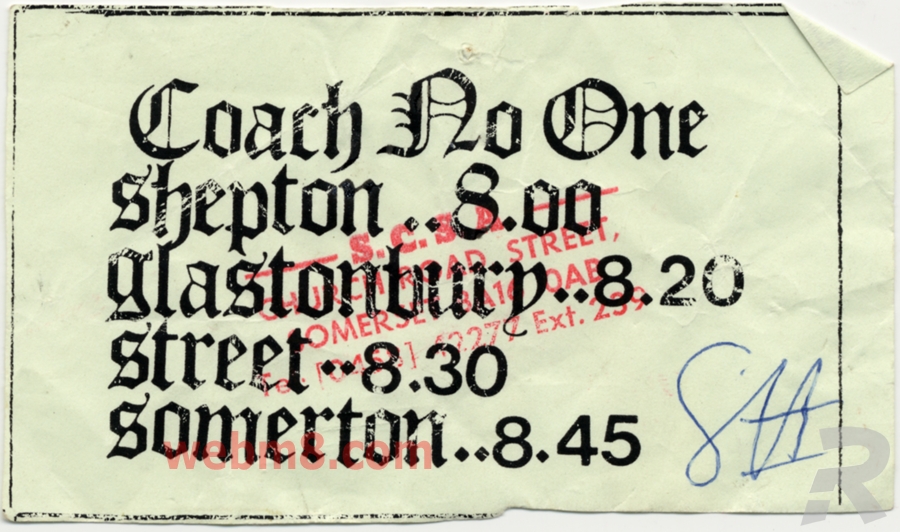 Coach No One
shepton..8.00
glastonbury..8.20
street..8.30
somerton..8.45
S.C.S.A
CHURCH ROAD, STREET,
SOMERSET BA16 0AB
Tel. [0458] 42277 Ext. 259
webm8.com
R